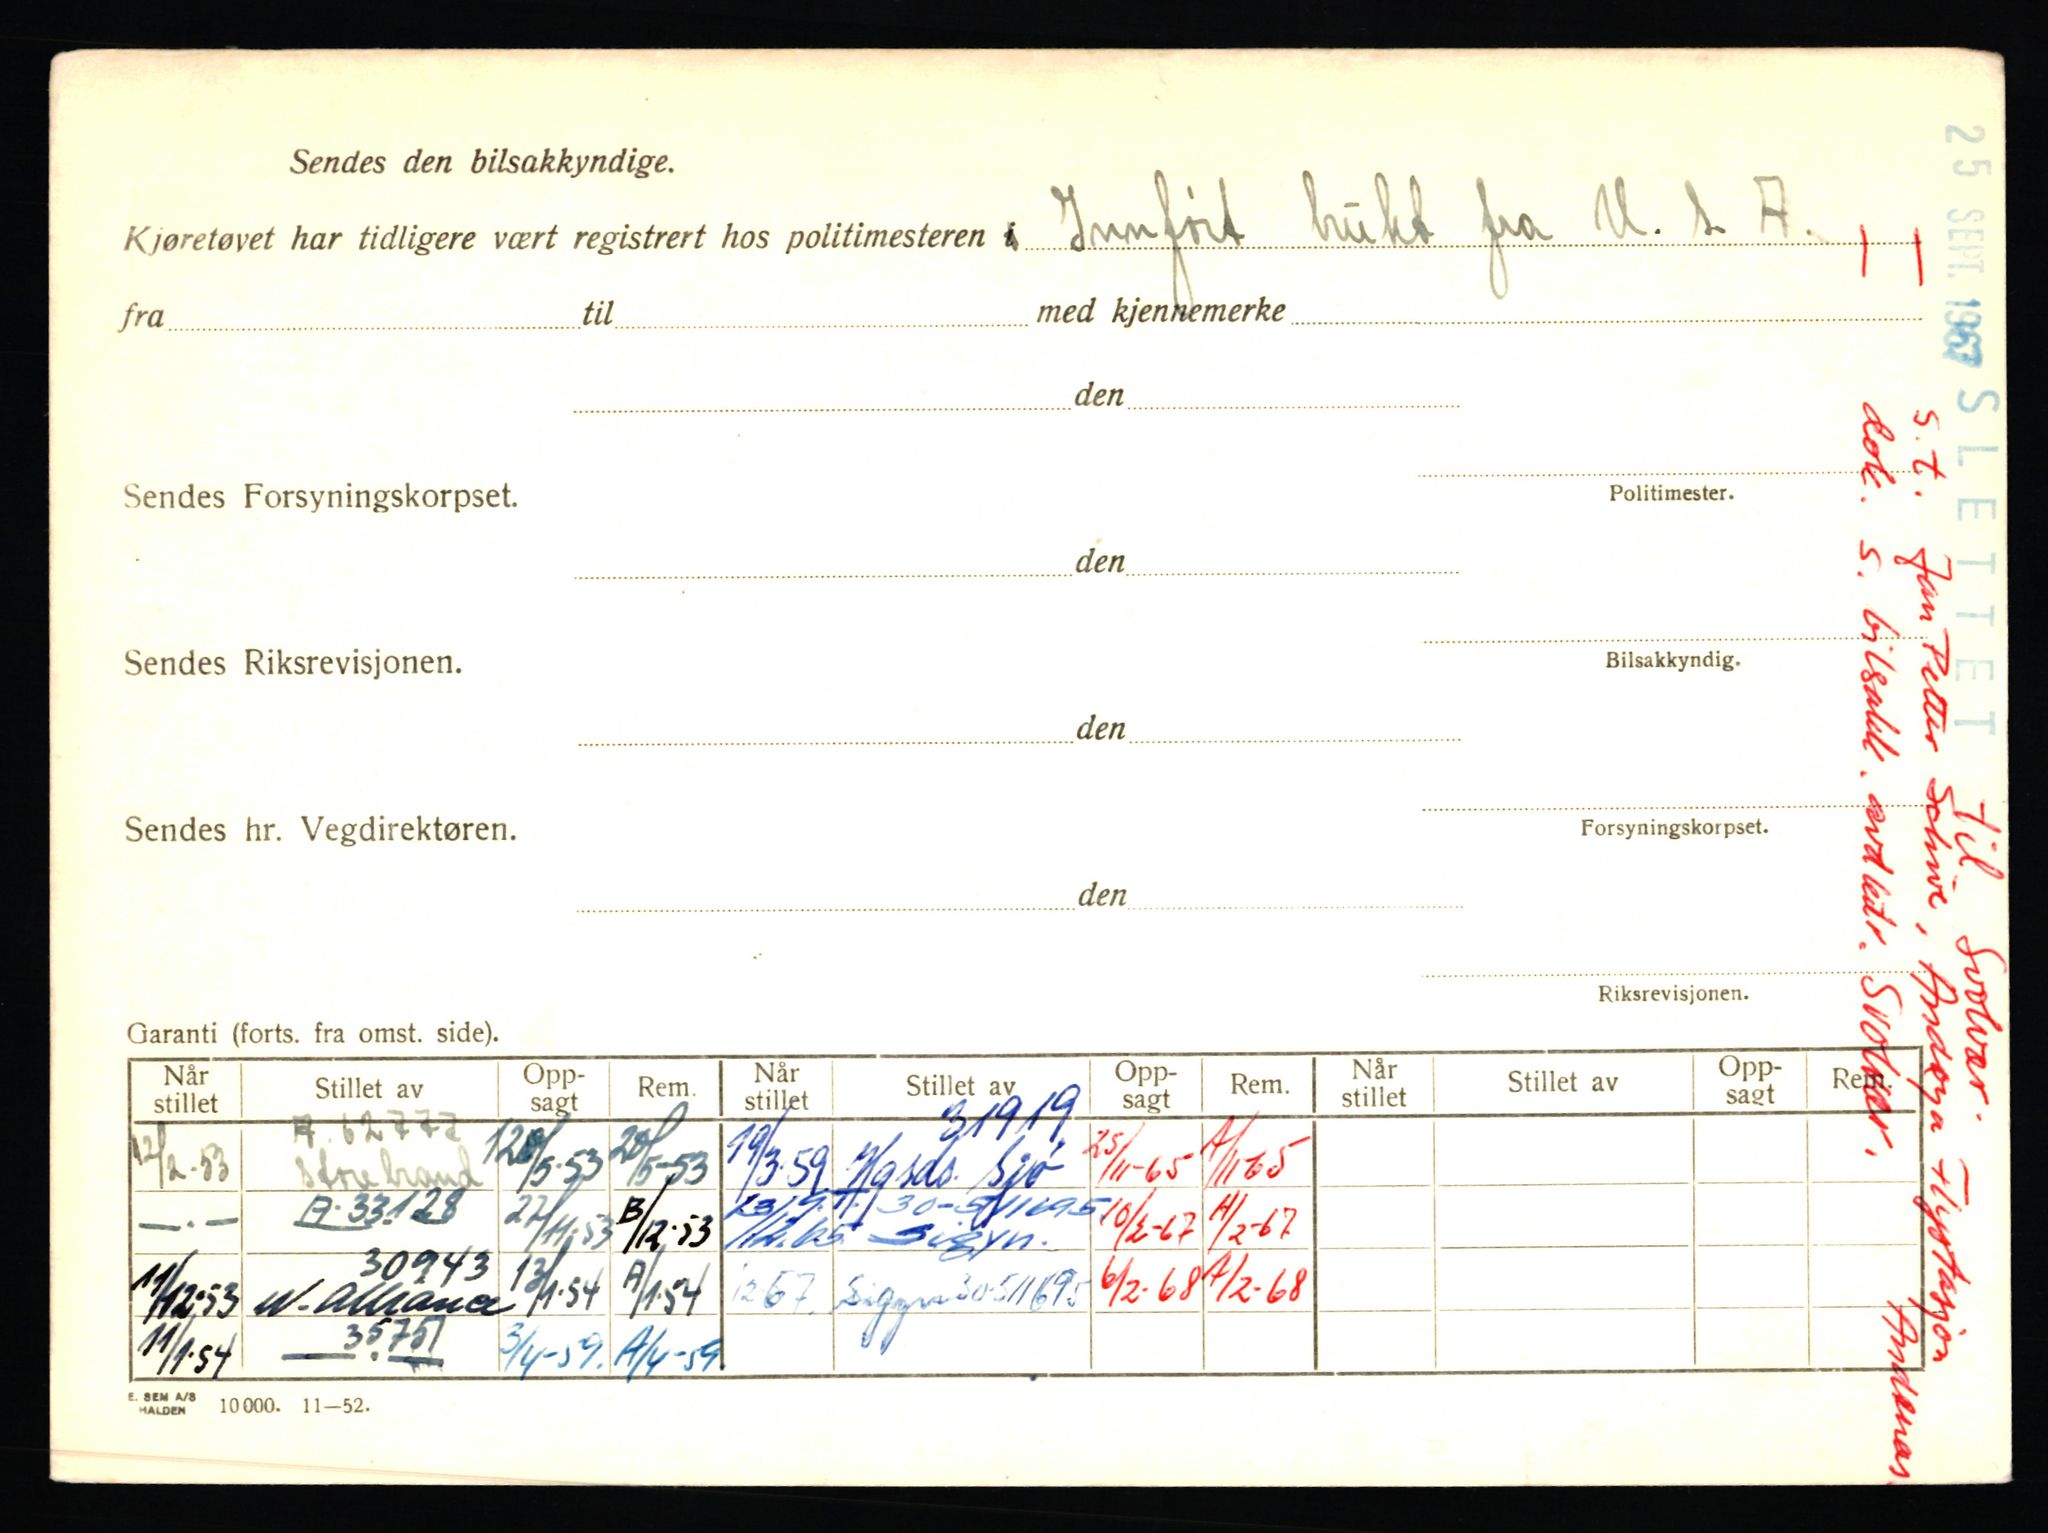 Sendes den bilsakkyndige.
Kjøretøvet har tidligere vært registrert hos politimesteren i Innført brukt fra U. S. A.
fra til med kjennemerke
den
Politimester.
Sendes Forsyningskorpset.
den
Bilsakkyndig.
Sendes Riksrevisjonen.
den
Forsyningskorpset.
Sendes hr. Vegdirektøren.
den
Riksrevisjonen.
Garanti (forts. fra omst. side).
Når stillet Stillet av Opp-sagt Rem. Når stillet Stillet av Opp-sagt Rem. Når stillet Stillet av Opp-sagt Rem.
12/2.53 A.62777 Storebrand /5.53 20/5-53 19/3.59 31919 Sjø 25/11-65 A/11-65
—.— A.33.128 27/11.53 B/12.53 /12.65 30-5/11695 Sigyn. 10/2-67 A/2-67
11/12.53 30943 N. Alliance 13/1.54 A/1.54 12.67. Sigyn 30.5/11695 6/2-68 A/2-68
11/1.54 35751 —.— 3/4-59. A/4-59
E. SEM A/S
HALDEN 10000. 11—52.
25 SEPT. 1967 SLETTET til Svolvær.
s.t. Jan Petter Schive, Andøya Flystasjon
Andenes
dok. s. bilsakk. Svolvær.